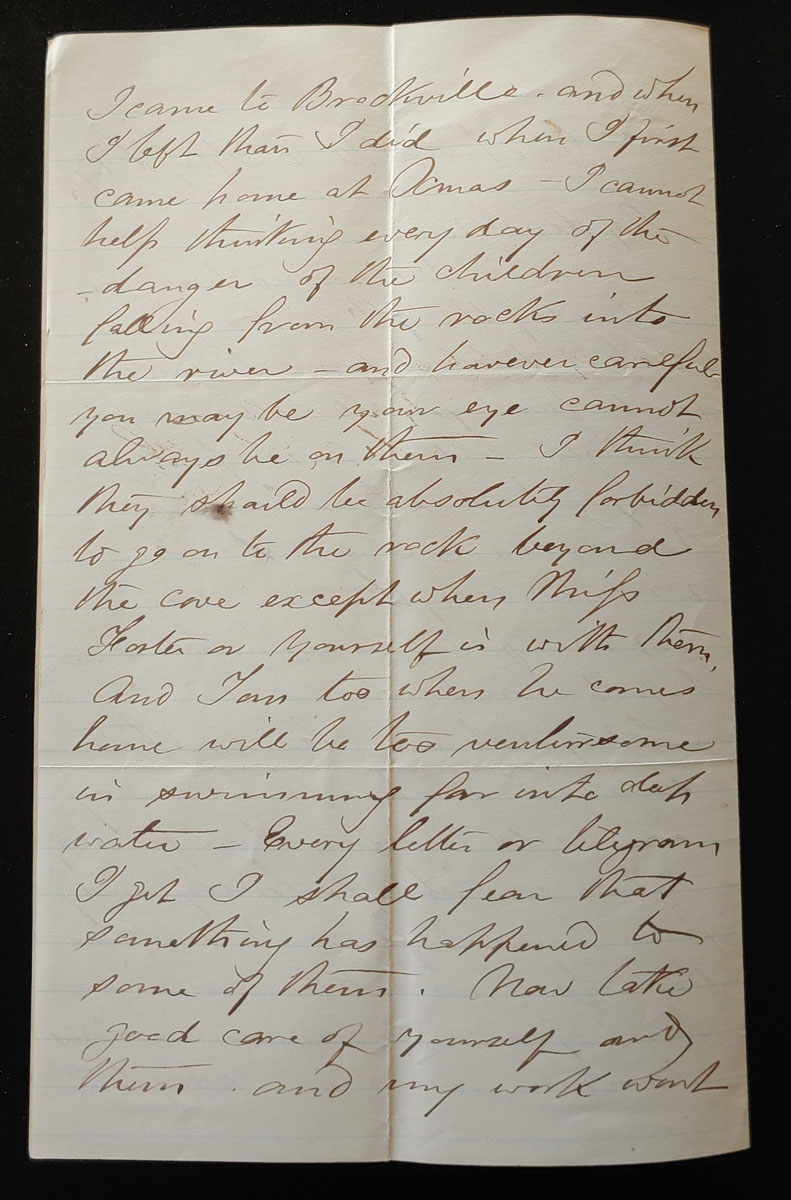 I came to Brockville - and when
I left than I did when I first
came home at Xmas - I cannot
help thinking every day of the
- danger of the children
falling from the rocks into
the river - and however careful
you may be your eye cannot
always be on them - I think
they should be absolutely forbidden
to go on to the rock beyond
the cove except when Miss
Foster or yourself is with them,
And Tom too when he comes
home will be too venturesome
in swimming far into deep
water - Every letter or telegram
I get I shall fear that
something has happened to
some of them. Now take
good care of yourself and
them. and my work wont